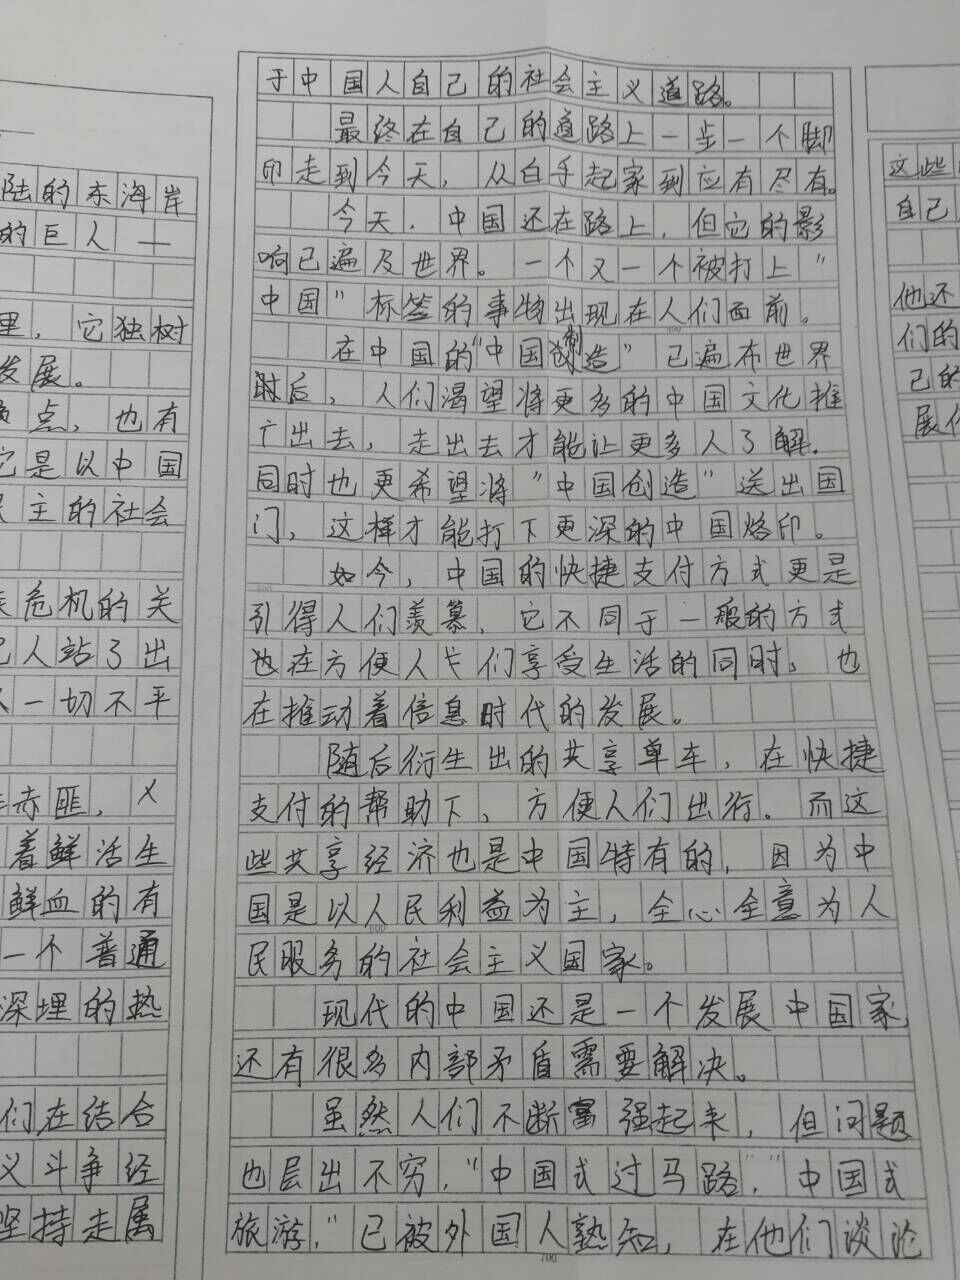 陆的东海岸
的巨人——
里，它独树
发展。
点，也有
它是以中国
主的社会
危机的关
人站了出
一切不平
赤匪，义
着鲜活生
鲜血的有
一个普通
深埋的热
们在结合
义斗争经
坚持走属
于中国人自己的社会主义道路。
最终在自己的道路上一步一个脚
印走到今天，从白手起家到应有尽有。
今天，中国还在路上，但它的影
响已遍及世界。一个又一个被打上"
中国"标签的事物出现在人们面前。
在中国的"中国制造"已遍布世界
时后，人们渴望将更多的中国文化推
广出去，走出去才能让更多人了解。
同时也更希望将"中国创造"送出国
门，这样才能打下更深的中国烙印。
如今，中国的快捷支付方式更是
引得人们羡慕，它不同于一般的方式
也在方便人们享受生活的同时，也
在推动着信息时代的发展。
随后衍生出的共享单车，在快捷
支付的帮助下，方便人们出行。而这
些共享经济也是中国特有的，因为中
国是以人民利益为主，全心全意为人
600
民服务的社会主义国家。
现代的中国还是一个发展中国家，
还有很多内部矛盾需要解决。
虽然人们不断富强起来，但问题
也层出不穷，"中国式过马路，""中国式
旅游，"已被外国人熟知，在他们谈论
700
这些
自己
他还
们的
己的
展